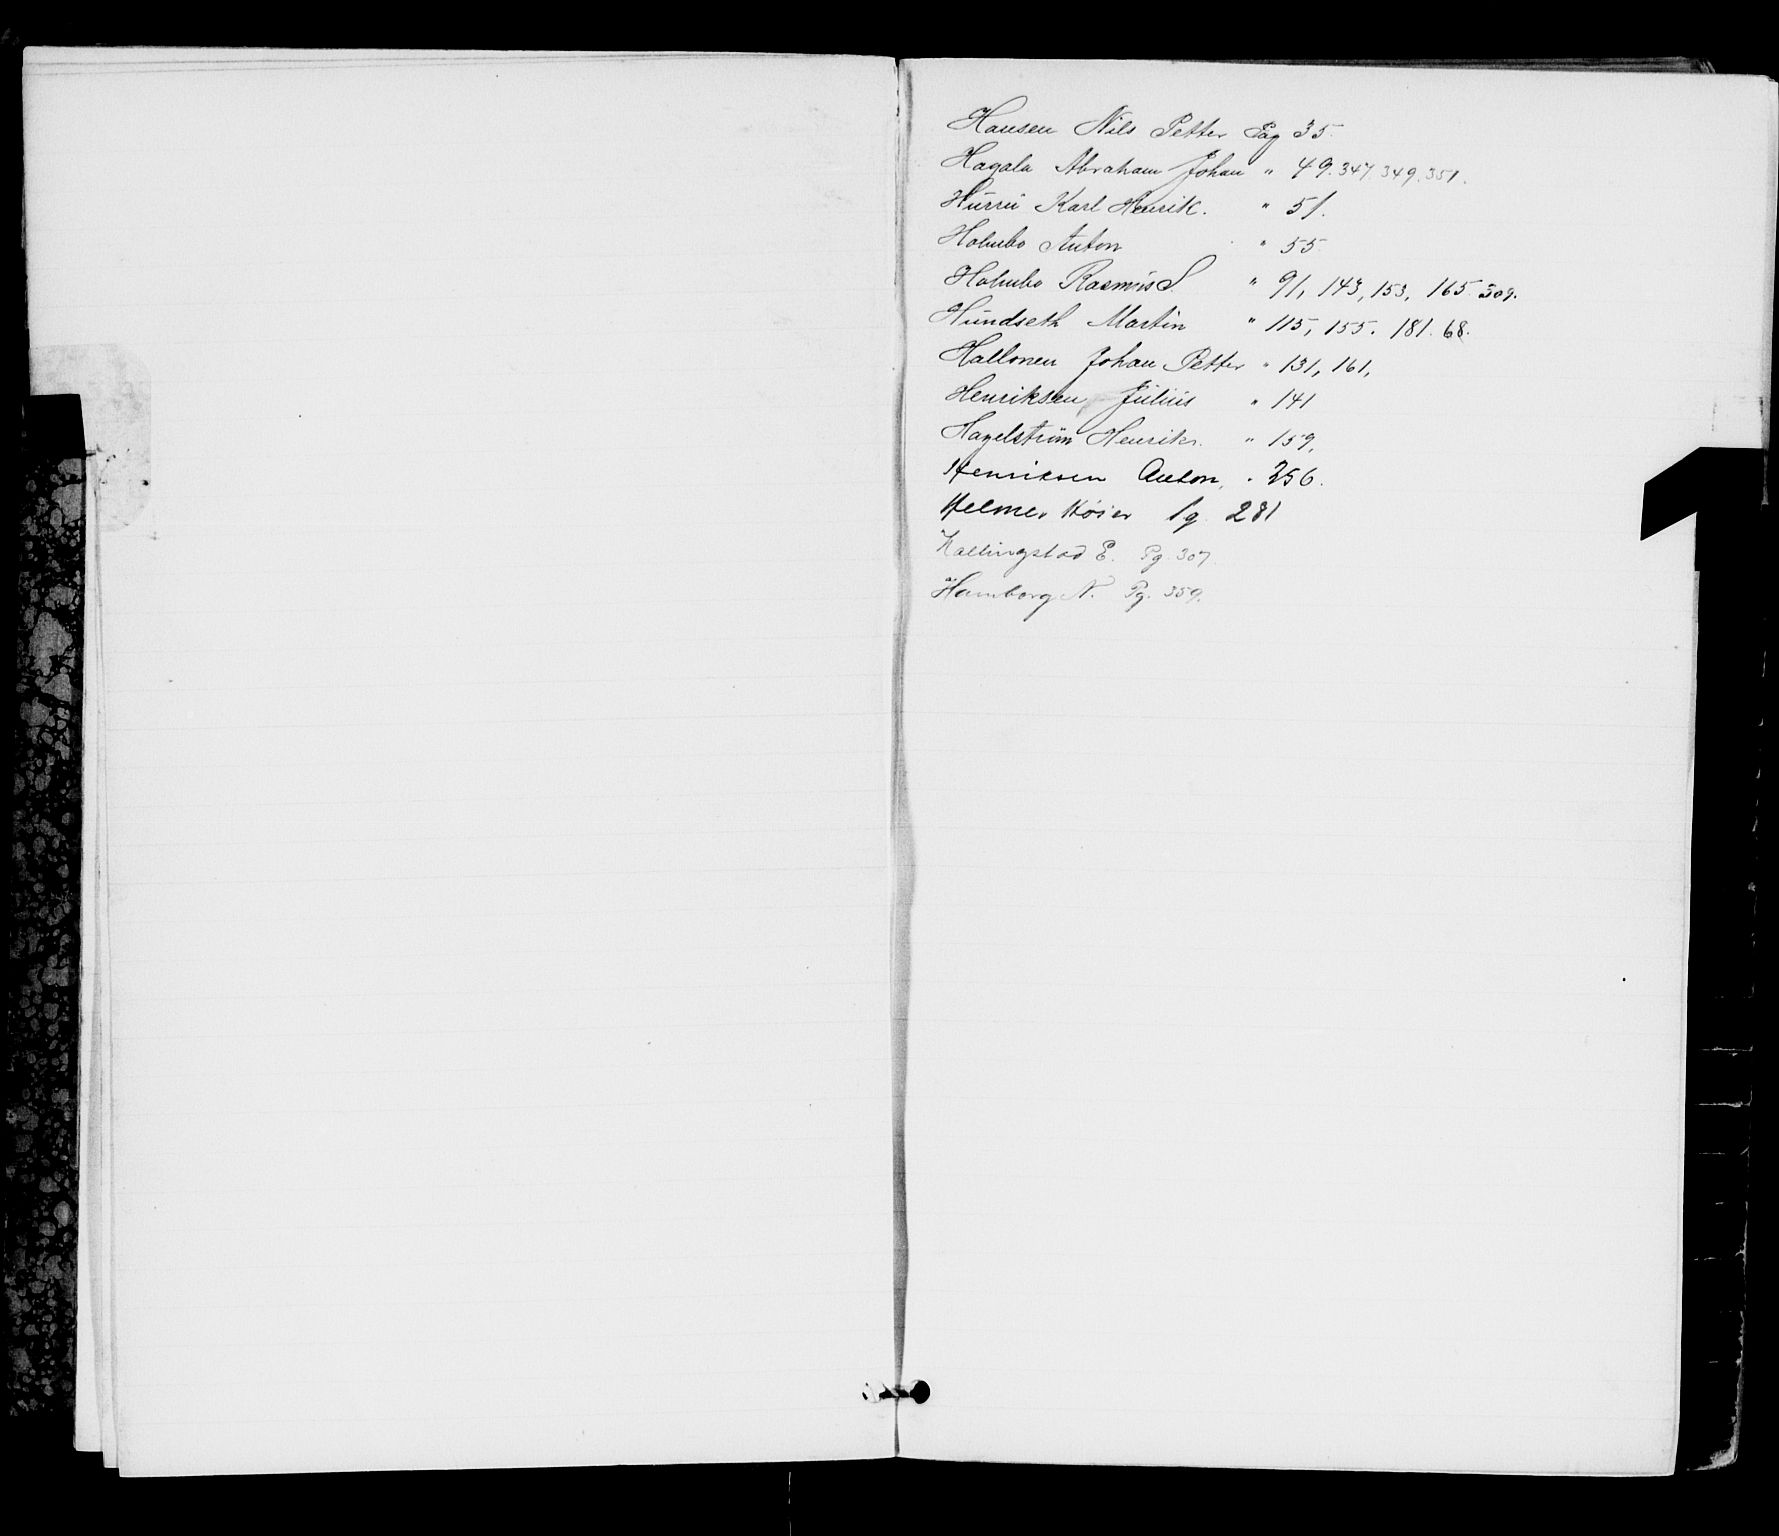 Hansen Nils Petter Pag 35.
Hagala Abraham Johan " 49. 347. 349. 351.
Hurri Karl Henrik. " 51.
Holmbo Anton " 55.
Holmbo Rasmus S. " 91, 143, 153, 165. 309.
Hundseth Martin " 115, 155. 181. 68.
Hallonen Johan Petter " 131, 161,
Henriksen Julius " 141
Hagelstrüm Henrik. " 159,
Henriksen Anton, " 256.
Helmer Høier Pg. 281
Hallingstad E. Pg. 307.
Hamborg N. Pg. 359.